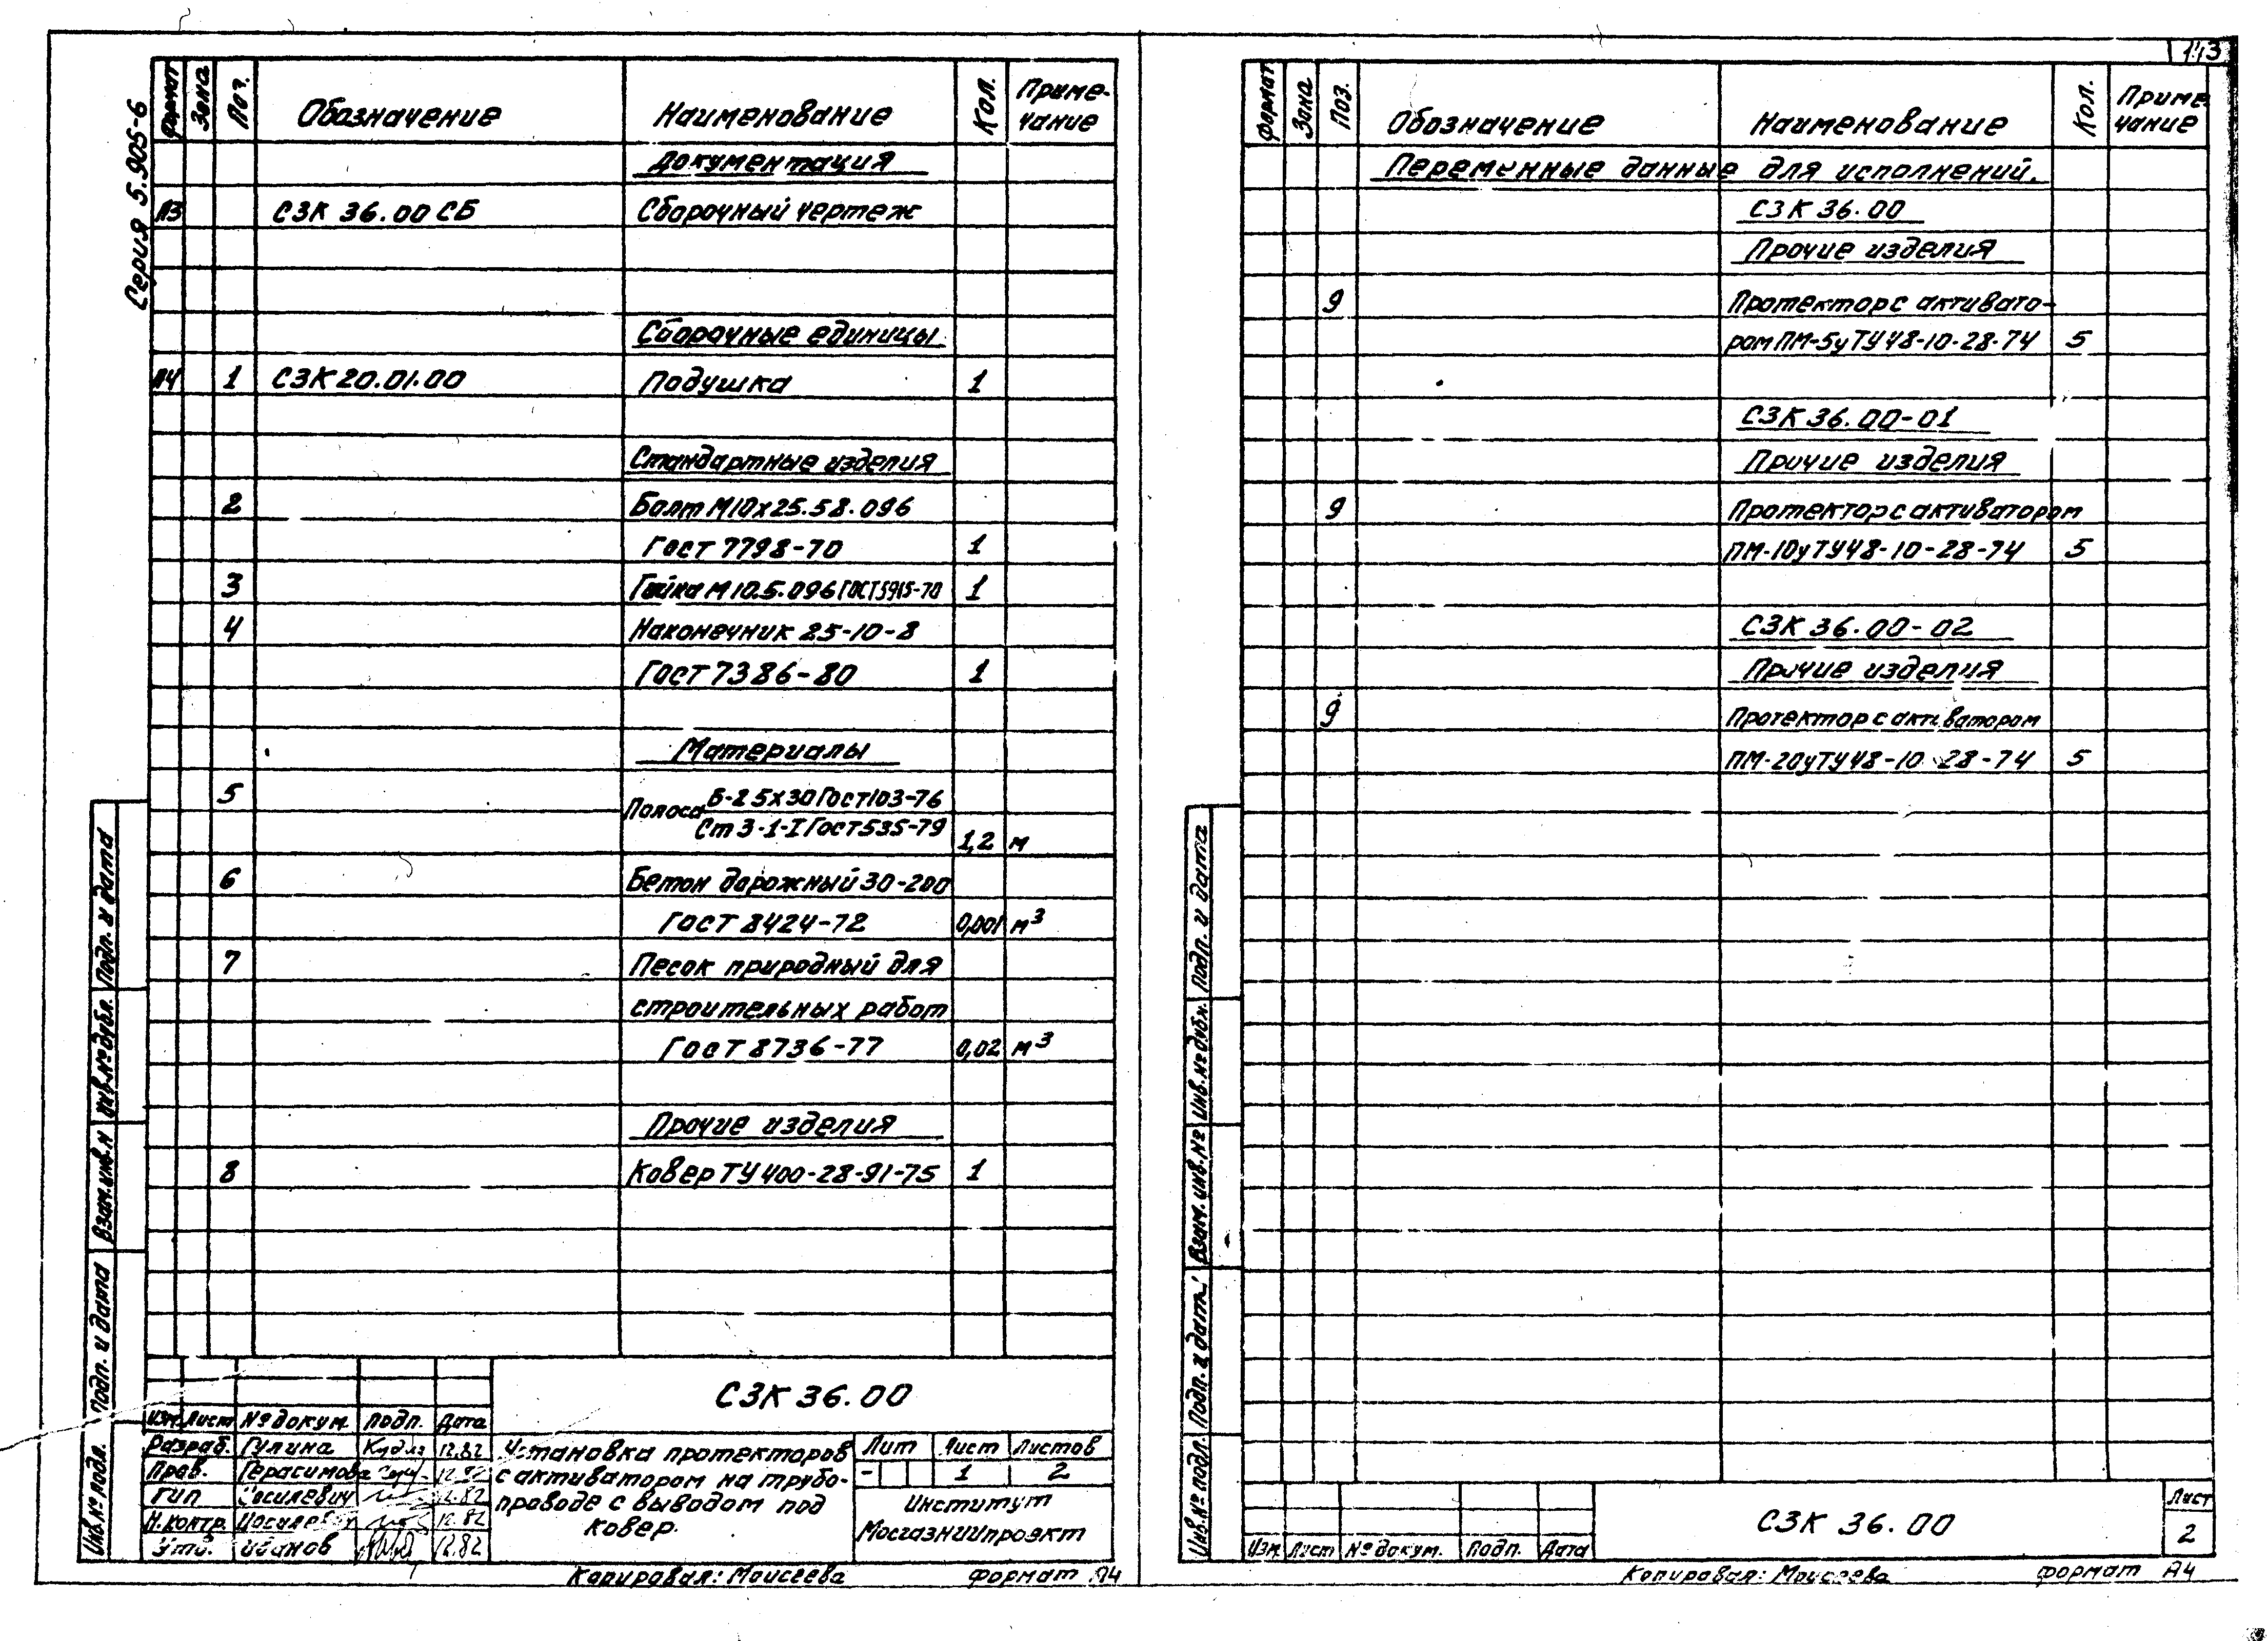 Серия 5.905-6
Формат Зона Поз. Обозначение Наименование Кол. Приме-
чание
Документация
А3 СЗК 36.00 СБ Сборочный чертеж
Сборочные единицы
А4 1 СЗК 20.01.00 Подушка 1
Стандартные изделия
2 Болт М10х25.58.096
Гост 7798-70 1
3 Гайка М10.5.096 ГОСТ 5915-70 1
4 Наконечник 25-10-8
Гост 7386-80 1
Материалы
5 Полоса Б-2 5х30 Гост 103-76
Ст 3-1-I Гост 535-79
1,2 м
6 Бетон дорожный 30-200
Гост 8424-72 0,001 м3
7 Песок природный для
строительных работ
Гост 8736-77 0,02 м3
Прочие изделия
8 Ковер ТУ 400-28-91-75 1
Подп. и дата
Инв.№ дубл.
Взам.инв.№
Подп. и дата
Инв.№ подл.
СЗК 36.00
Изм. Лист № докум. Подп. Дата
Разраб. Гулина 12.82
Пров. Герасимова 12.82
ГИП Иосилевич 12.82
Н.контр. Иосилевич 12.82
Утв. Иванов 12.82
Установка протекторов
с активатором на трубо-
проводе с выводом под
ковер.
Лит Лист Листов
- 1 2
Институт
МосгазНИИпроэкт
Копировал: Моисеева Формат А4
143
Формат Зона Поз. Обозначение Наименование Кол. Приме
чание
Переменные данные для исполнений.
СЗК 36.00
Прочие изделия
9 Протектор с активато-
ром ПМ-5у ТУ 48-10-28-74 5
СЗК 36.00-01
Прочие изделия
9 Протектор с активатором
ПМ-10у ТУ 48-10-28-74 5
СЗК 36.00-02
Прочие изделия
9 Протектор с активатором
ПМ-20у ТУ 48-10-28-74 5
Подп. и дата
Инв.№ дубл.
Взам.инв.№
Подп. и дата
Инв.№ подл.
Изм. Лист № докум. Подп. Дата
СЗК 36.00
Лист
2
Копировал: Моисеева Формат А4